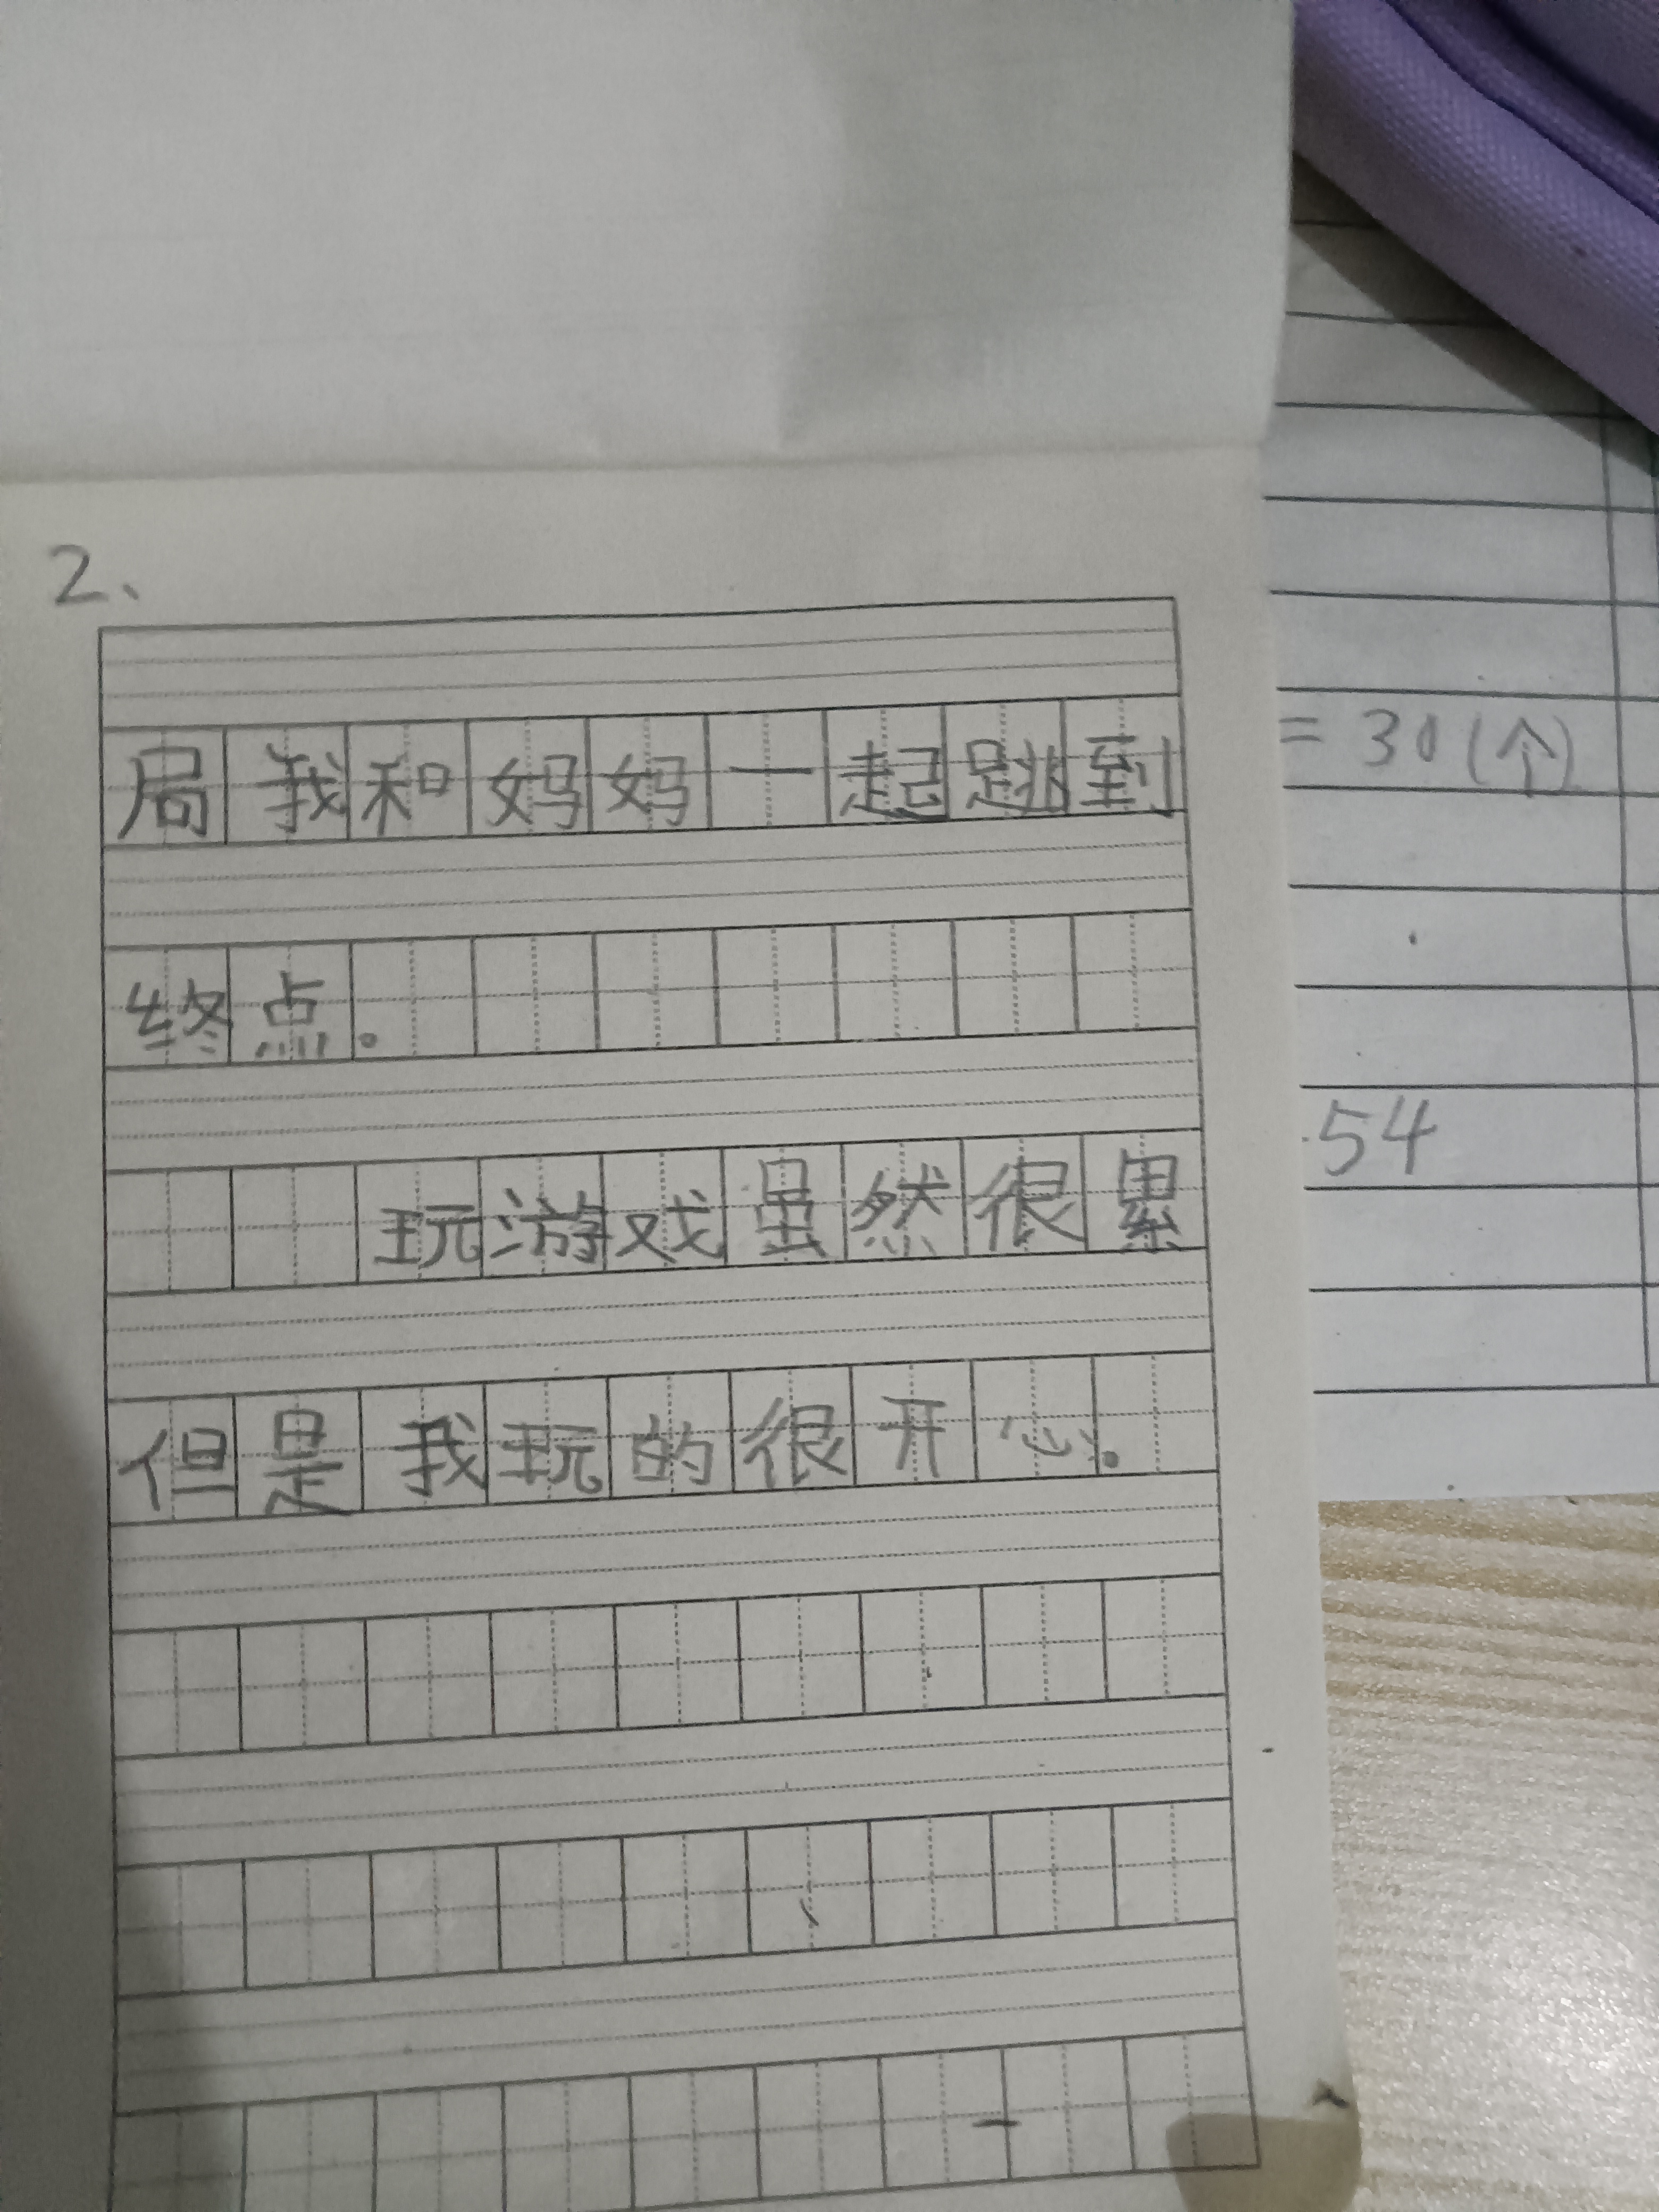 2、
局我和妈妈一起跳到
终点。
玩游戏虽然很累
但是我玩的很开心。
=30(个)
54